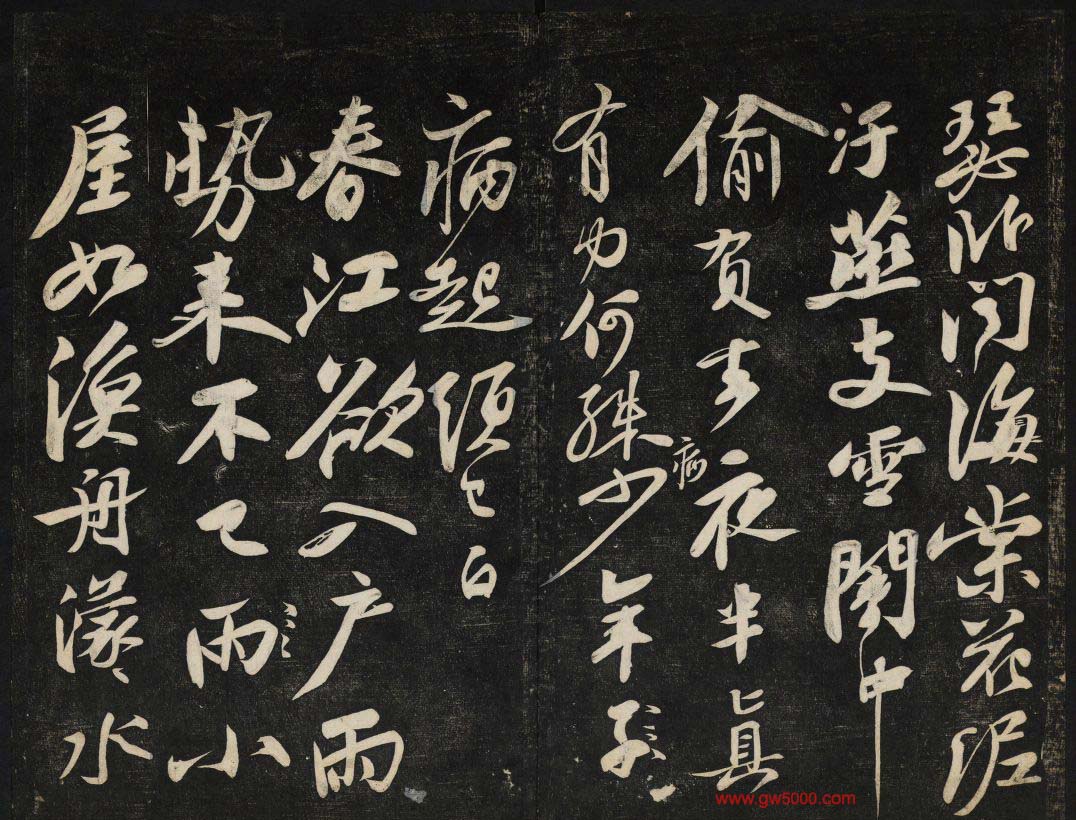 瑟卧聞海棠花泥
汙燕支雪闇中
偷負去夜半真
有力何殊病少年子
病起須已白
春江欲入户雨
勢来不已雨小
屋如漁舟濛々水
www.gw5000.com